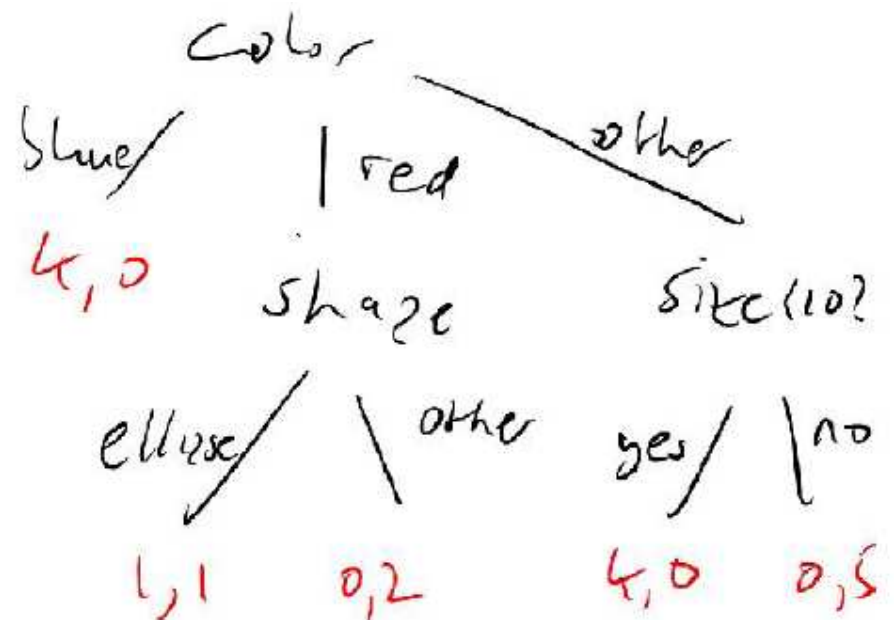 color
blue red other
4,0
shape size<10?
ellipse other yes no
1,1 0,2 4,0 0,5